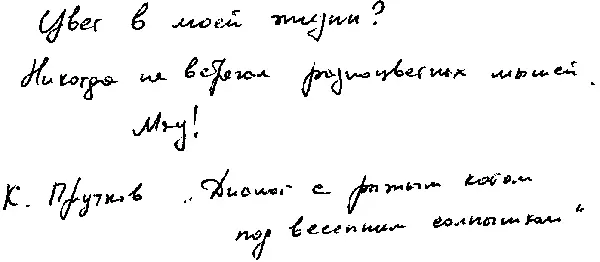 Цвет в моей жизни?
Никогда не встречал разноцветных мышей.
Мяу!
К. Прутков „Диалог с рыжим котом
под весенним солнышком“